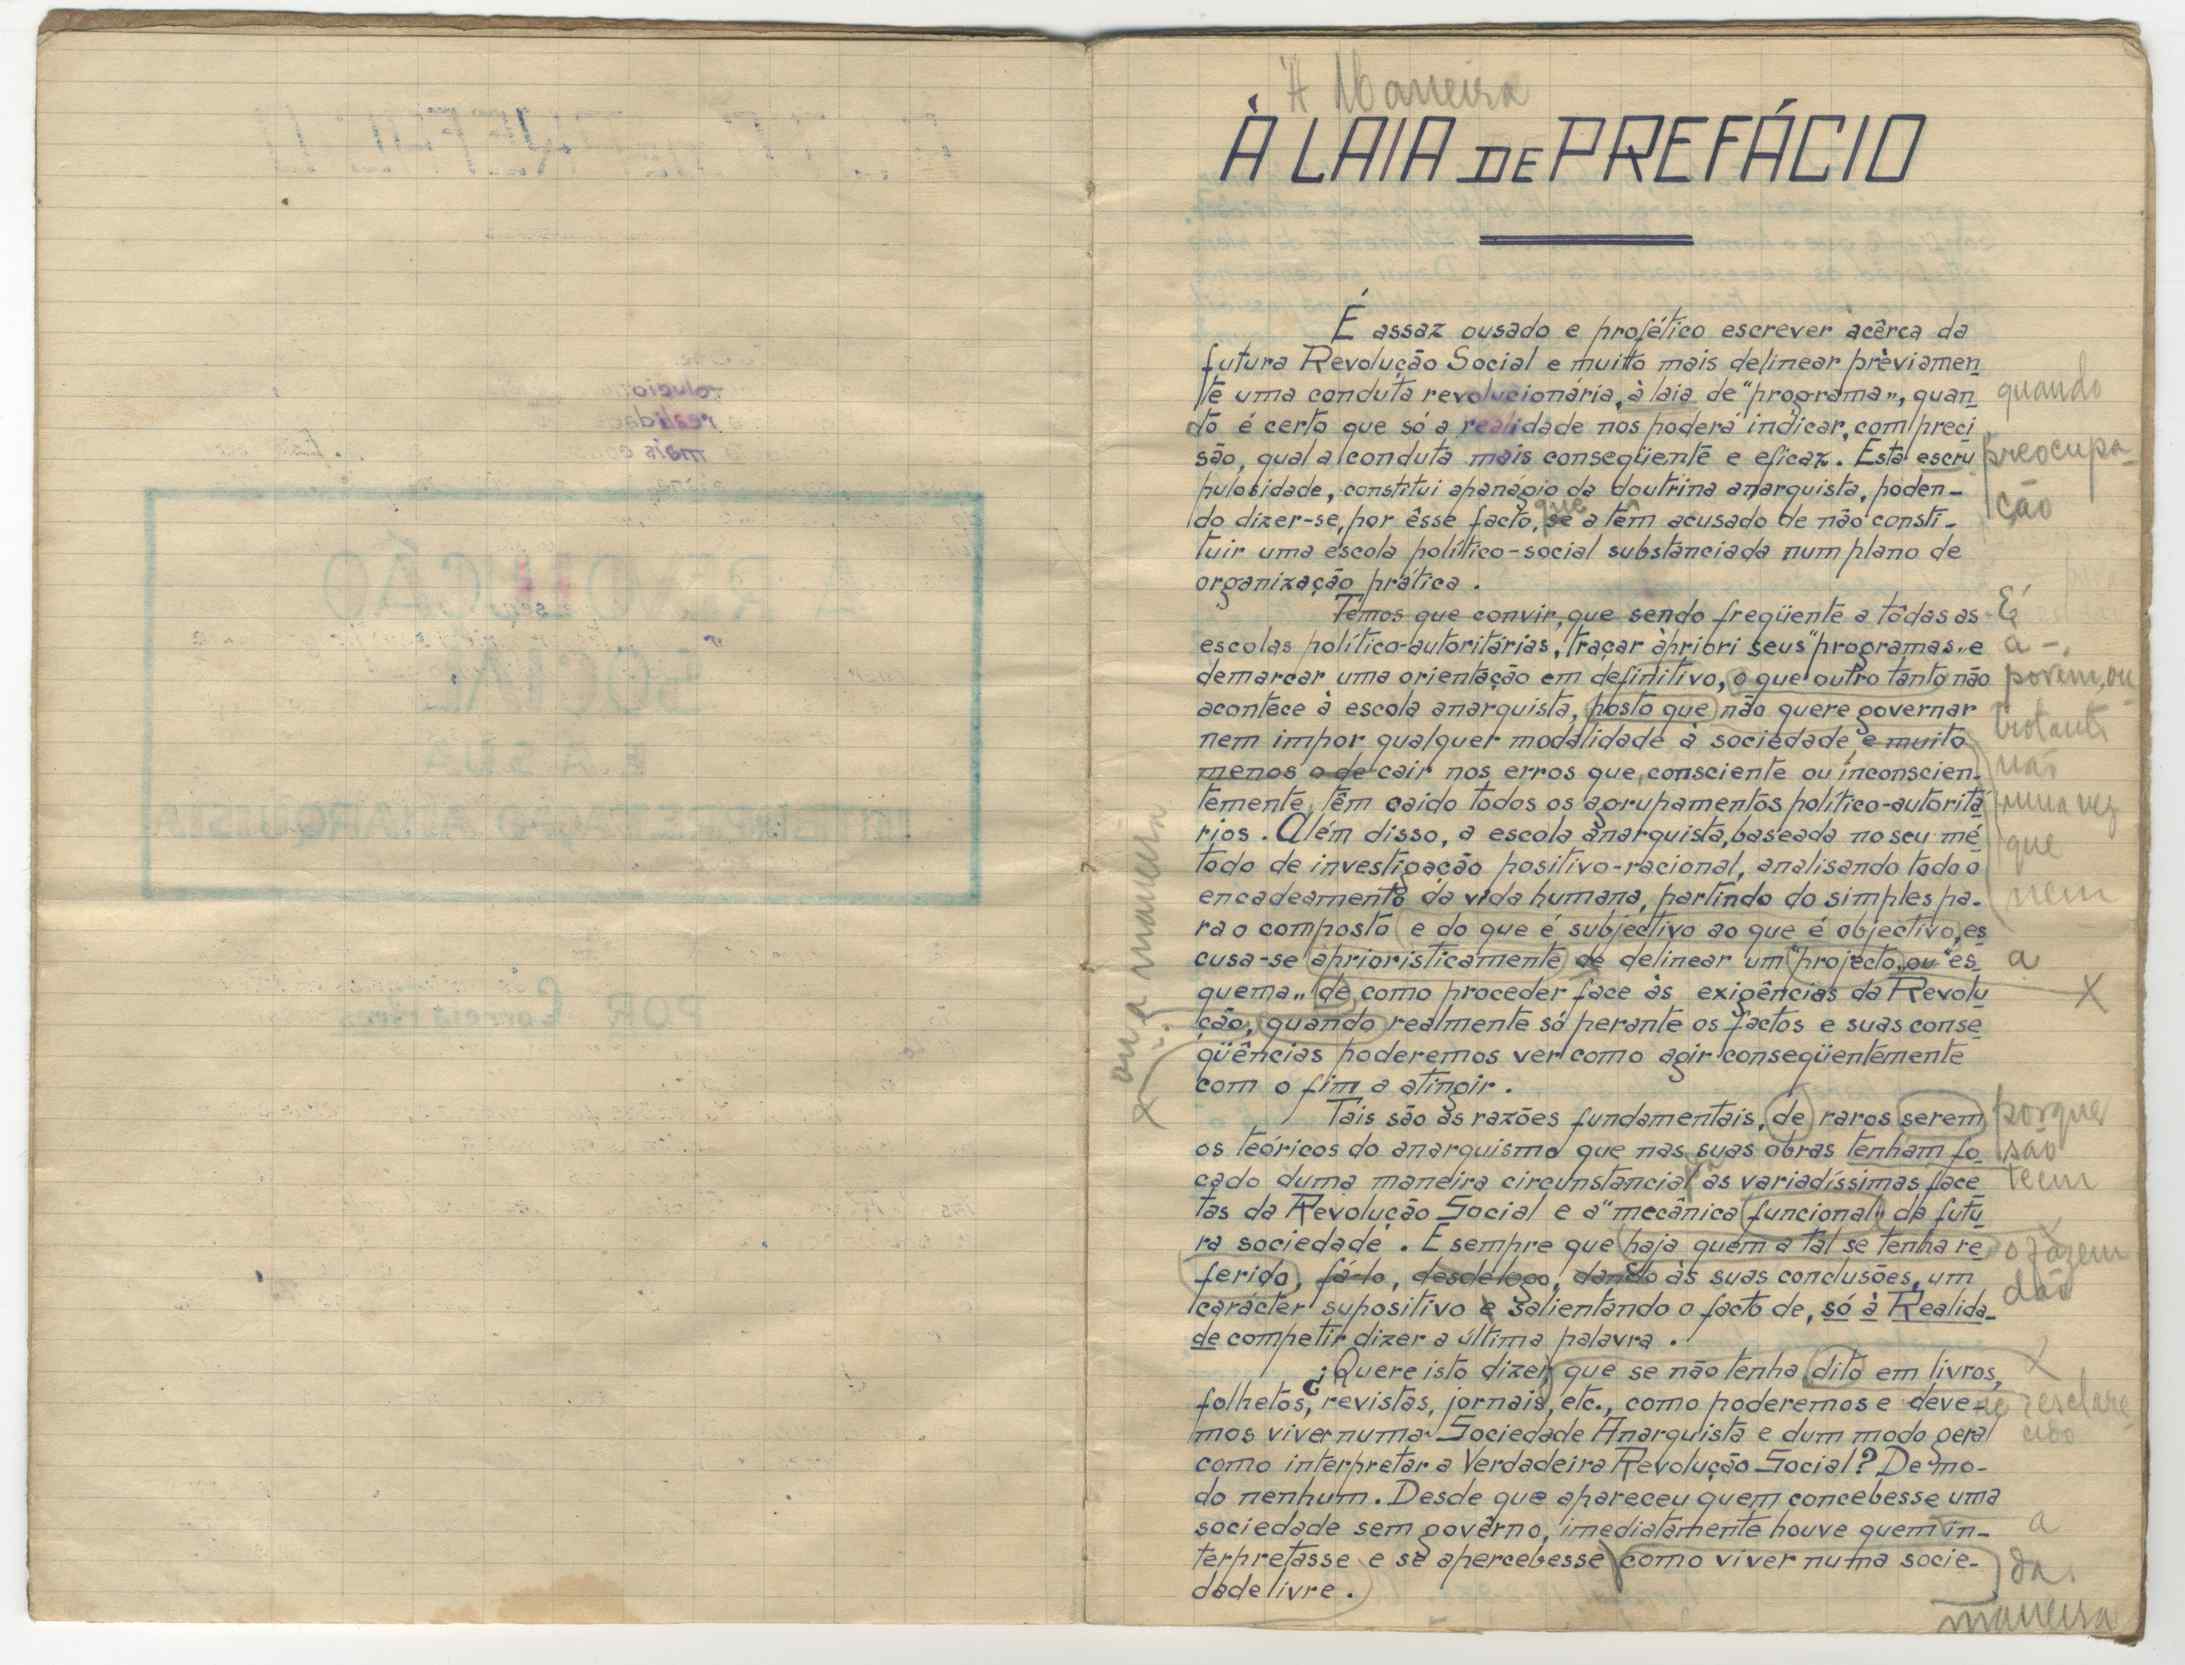 A REVOLUÇÃO
SOCIAL
E A SUA
INTERPRETAÇÃO ANARQUISTA
POR Correia Pires
A Maneira
À LAIA DE PREFÁCIO
É assaz ousado e profético escrever àcêrca da
futura Revolução Social e muito mais delinear prèviamen
te uma conduta revolucionária, à laia de "programa", quan
to é certo que só a realidade nos poderá indicar, com preci
são, qual a conduta mais conseqüente e eficaz. Esta escru
pulosidade, constitui apanagio da doutrina anarquista, poden-
do dizer-se, por êsse facto, se a têm acusado de não consti-
tuir uma escola político-social substanciada num plano de
organização prática.
Temos que convir, que sendo freqüente a tôdas as
escolas político-autoritárias, traçar àpriori seus "programas" e
demarcar uma orientação em definitivo, o que outro tanto não
acontece à escola anarquista, posto que não quere governar
nem impor qualquer modalidade à sociedade e muito
menos o de cair nos erros que, consciente ou inconscien-
temente, têm caido todos os agrupamentos político-autoritá
rios. Além disso, a escola anarquista, baseada no seu mé
todo de investigação positivo-racional, analisando todo o
encadeamento da vida humana, partindo do simples pa-
ra o composto e do que é subjectivo ao que é objectivo, es
cusa-se aprioristicamente de delinear um "projecto" ou "es
quema" de como proceder face às exigências da Revolu
ção, quando realmente só perante os factos e suas conse
qüências poderemos ver como agir conseqüentemente
com o fim a atingir.
Tais são as razões fundamentais, de raros serem
os teóricos do anarquismo que nas suas obras tenham fo
cado duma maneira circunstancial as variadíssimas face
tas da Revolução Social e a "mecânica funcional" da futu
ra sociedade. E sempre que haja quem a tal se tenha re
ferido, fá-lo, desdelogo, dando às suas conclusões, um
carácter supositivo e salientando o facto de, só à Realida-
de competir dizer a última palavra.
¿Quere isto dizer que se não tenha dito em livros,
folhetos, revistas, jornais, etc., como poderemos e deve-
mos viver numa Sociedade Anarquista e dum modo geral
como interpretar a Verdadeira Revolução Social? De mo-
do nenhum. Desde que apareceu quem concebesse uma
sociedade sem govêrno, imediatamente houve quem in-
terpretasse e se apercebesse como viver numa socie-
dade livre.
quando
preocupa-
ção
que
É
a -
porém, ou
trotanto
não
numa vez
que
nem
a
X
ou a maneira
X
porque
são
teem
o fazem
dão
X
esclare
cido
a
da
maneira